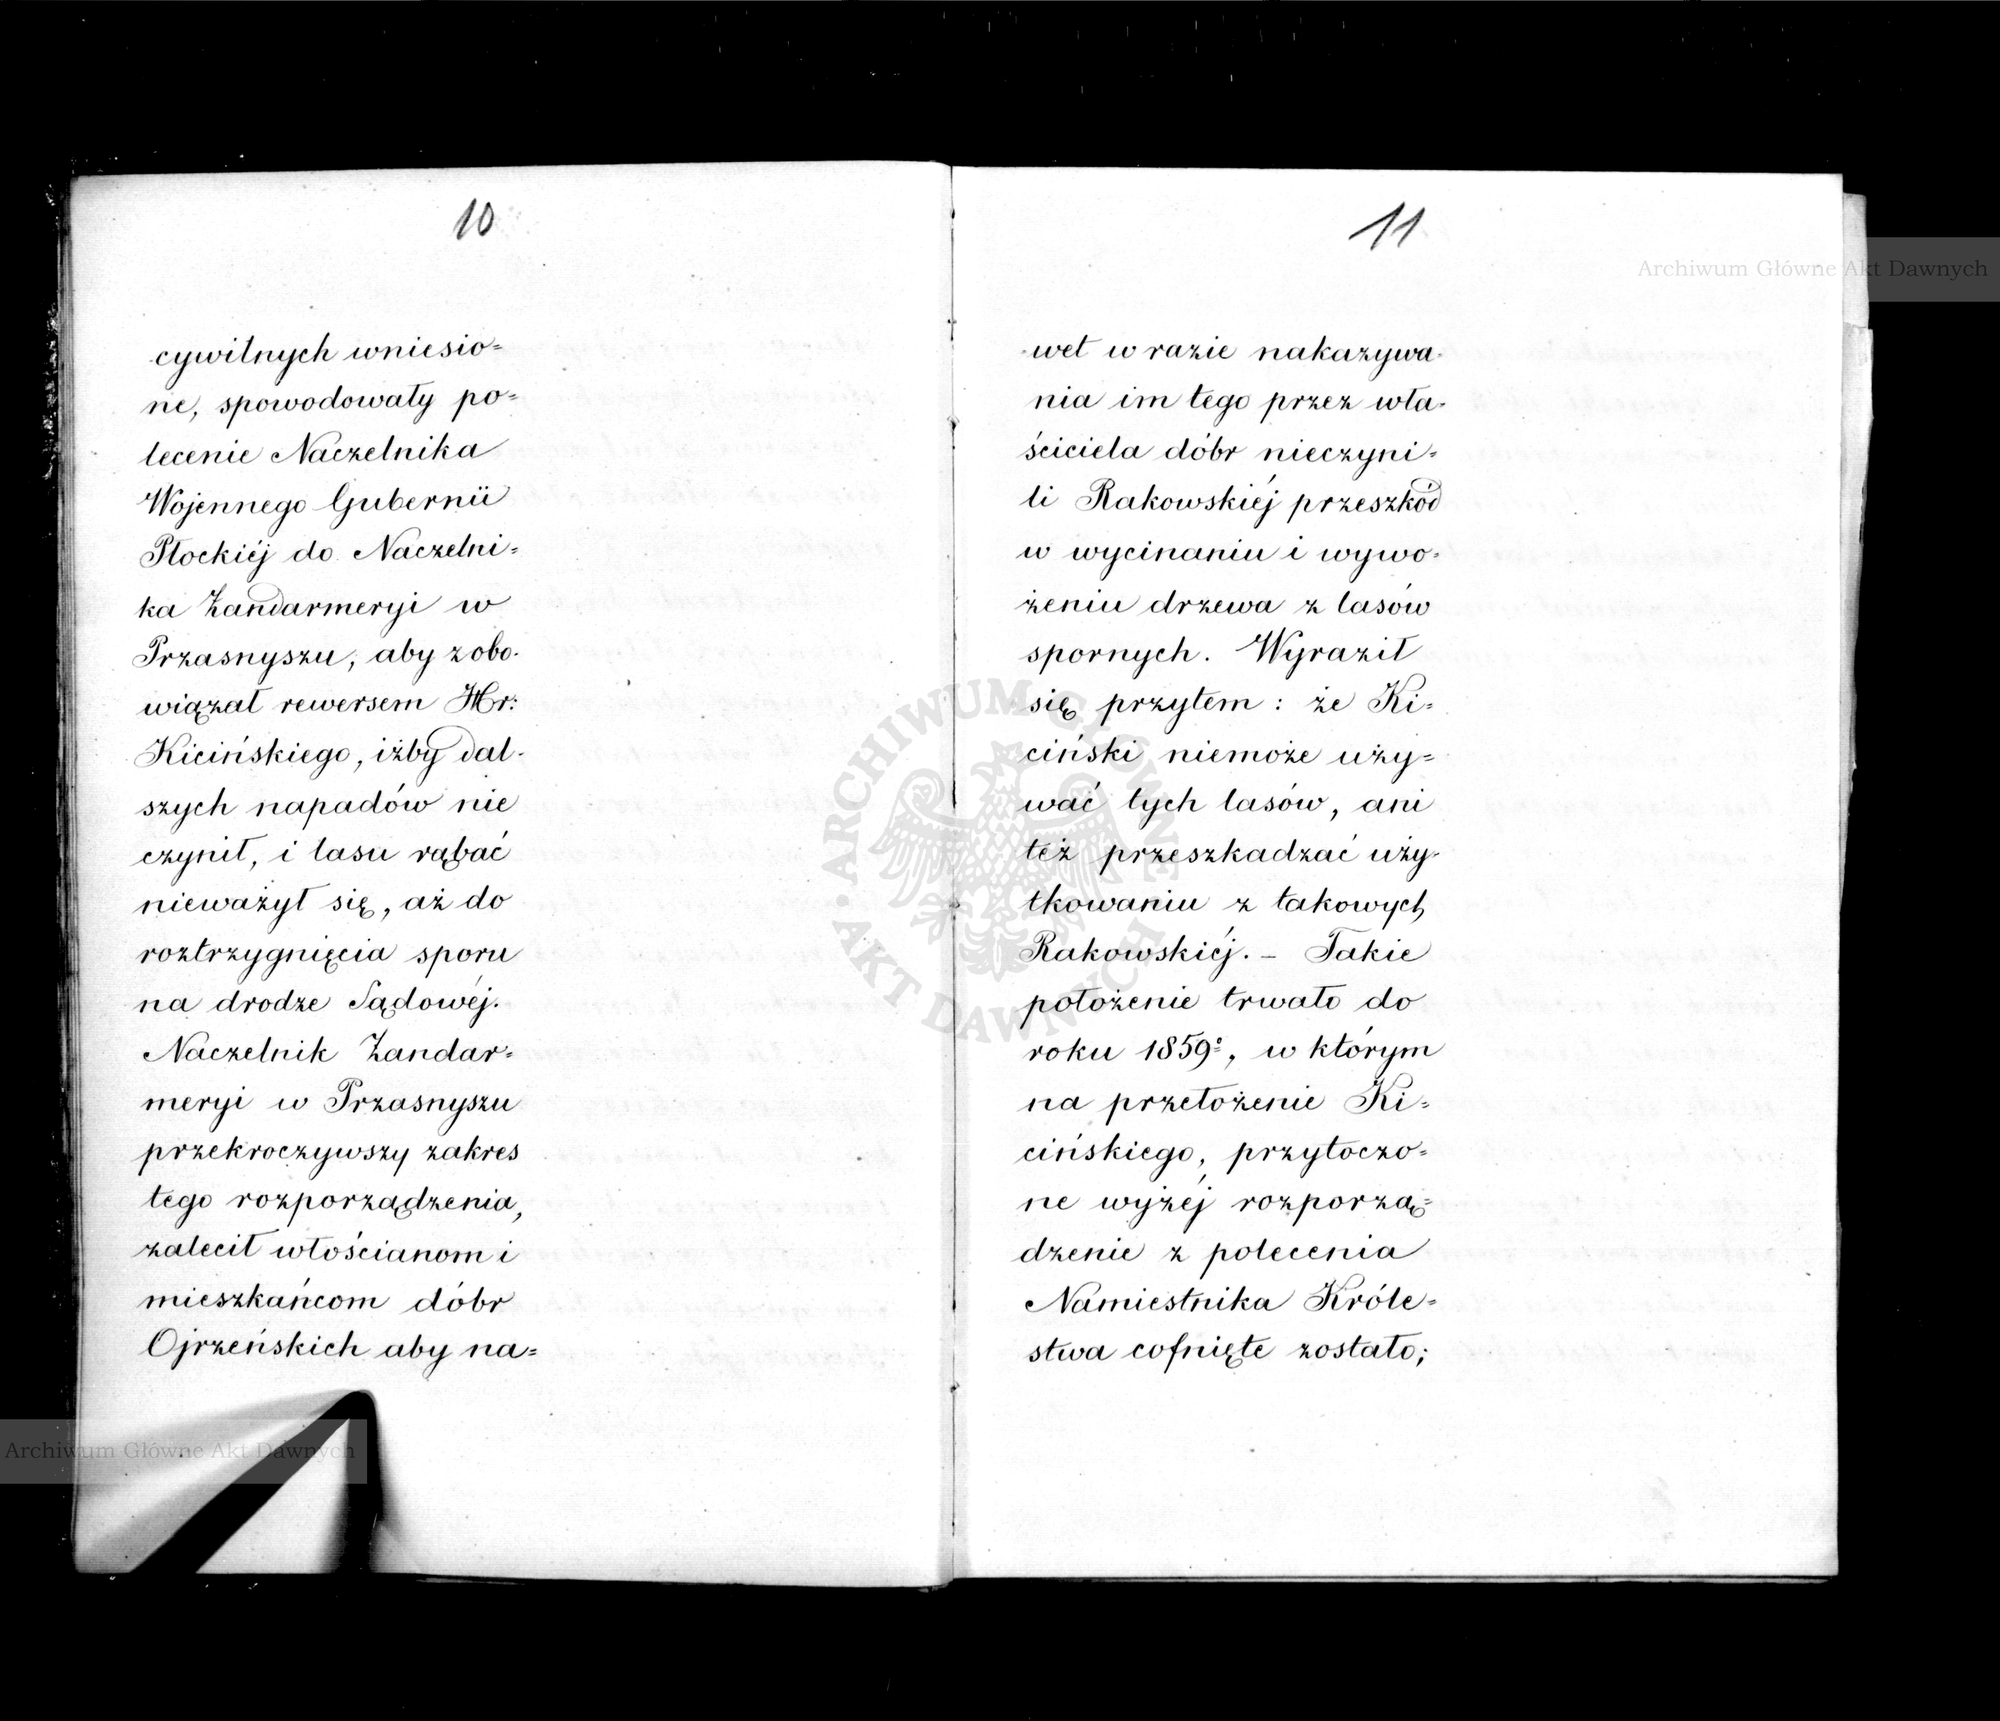 10
cywilnych wniesio=
ne, spowodowały po=
lecenie Naczelnika
Wojennego Gubernii
Płockiéj do Naczelni=
ka Żandarmeryi w
Przasnyszu, aby zobo-
wiązał rewersem Hr:
Kicińskiego, iżby dal-
szych napadów nie
czynił, i lasu rąbać
nieważył się, aż do
roztrzygnięcia sporu
na drodze Sądowéj.
Naczelnik Żandar=
meryi w Przasnyszu
przekroczywszy zakres
tego rozporządzenia,
zalecił włościanom i
mieszkańcom dóbr
Ojrzeńskich aby na=
11
wet w razie nakazywa-
nia im tego przez wła-
ściciela dóbr nieczyni=
li Rakowskiéj przeszkód
w wycinaniu i wywo-
żeniu drzewa z lasów
spornych. Wyraził
się przytem: że Ki=
ciński niemoże uży=
wać tych lasów, ani
też przeszkadzać uży-
tkowaniu z takowych
Rakowskiéj. – Takie
położenie trwało do
roku 1859º, w którym
na przełożenie Ki=
cińskiego, przytoczo=
ne wyżéj rozporzą=
dzenie z polecenia
Namiestnika Króle=
stwa cofnięte zostało;
Archiwum Główne Akt Dawnych
Archiwum Główne Akt Dawnych
ARCHIWUM GŁÓWNE AKT DAWNYCH